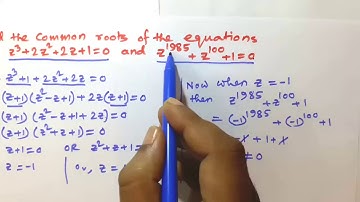 d the common roots of the equations
z³+2z²+2z+1=0 and z¹⁹⁸⁵+z¹⁰⁰+1=0
z³+1+2z²+2z=0
(z+1)(z²-z+1)+2z(z+1)=0
(z+1)(z²-z+1+2z)=0
(z+1)(z²+z+1)=0
z+1=0 OR z²+z+1=
z=-1 | or, z=
Now when z=-1
then z¹⁹⁸⁵+z¹⁰⁰+1
=(-1)¹⁹⁸⁵+(-1)¹⁰⁰+1
+1+1
≠0